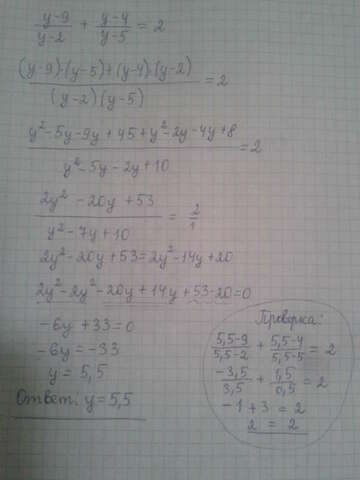 (y-9)/(y-2) + (y-4)/(y-5) = 2
((y-9)·(y-5)+(y-4)·(y-2))/((y-2)(y-5)) = 2
(y²-5y-9y+45+y²-2y-4y+8)/(y²-5y-2y+10) = 2
(2y²-20y+53)/(y²-7y+10) = 2/1
2y²-20y+53=2y²-14y+20
2y²-2y²-20y+14y+53-20=0
-6y+33=0
-6y=-33
y=5,5
Ответ: y=5,5
Проверка:
(5,5-9)/(5,5-2) + (5,5-4)/(5,5-5) = 2
(-3,5)/(3,5) + (1,5)/(0,5) = 2
-1+3=2
2 = 2